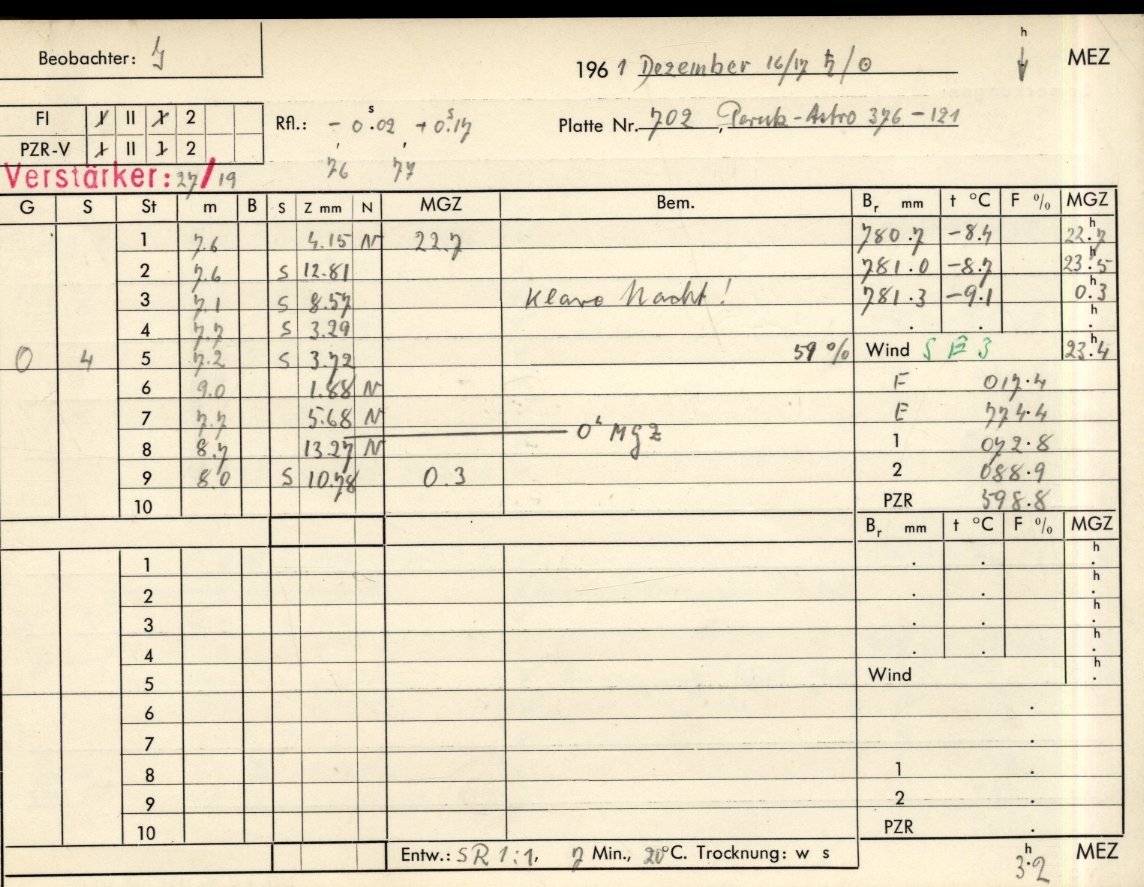 Beobachter: y
1961 Dezember 16/17 ♄/☉
h
MEZ
FI 1 II 1 2
PZR-V 1 II 1 2
Rfl.: - 0ˢ.02 + 0ˢ.17
76 77
Platte Nr. 702, Perutz-Astro 376-121
Verstärker: 27/19
G S St m B S Z mm N MGZ Bem. Bᵣ mm t °C F % MGZ
1 7.6 4.15 N 22.7 780.7 -8.4 22ʰ.7
2 7.6 S 12.81 781.0 -8.7 23ʰ.5
3 7.1 S 8.57 Klare Nacht! 781.3 -9.1 0ʰ.3
4 7.7 S 3.29 . . h.
0 4 5 7.2 S 3.72 59 % Wind S E 3 23ʰ.4
6 9.0 1.88 N F 017.4
7 7.7 5.68 N E 774.4
0ʰ MGZ
8 8.7 13.27 N 1 072.8
9 8.0 S 10.78 0.3 2 088.9
10 PZR 598.8
Bᵣ mm t °C F % MGZ
1 . . h.
2 . . h.
3 . . h.
4 . . h.
5 Wind h.
6 .
7 .
8 1 .
9 2 .
10 PZR .
Entw.: SR 1:1, 7 Min., 20°C. Trocknung: w s
3ʰ.2 MEZ